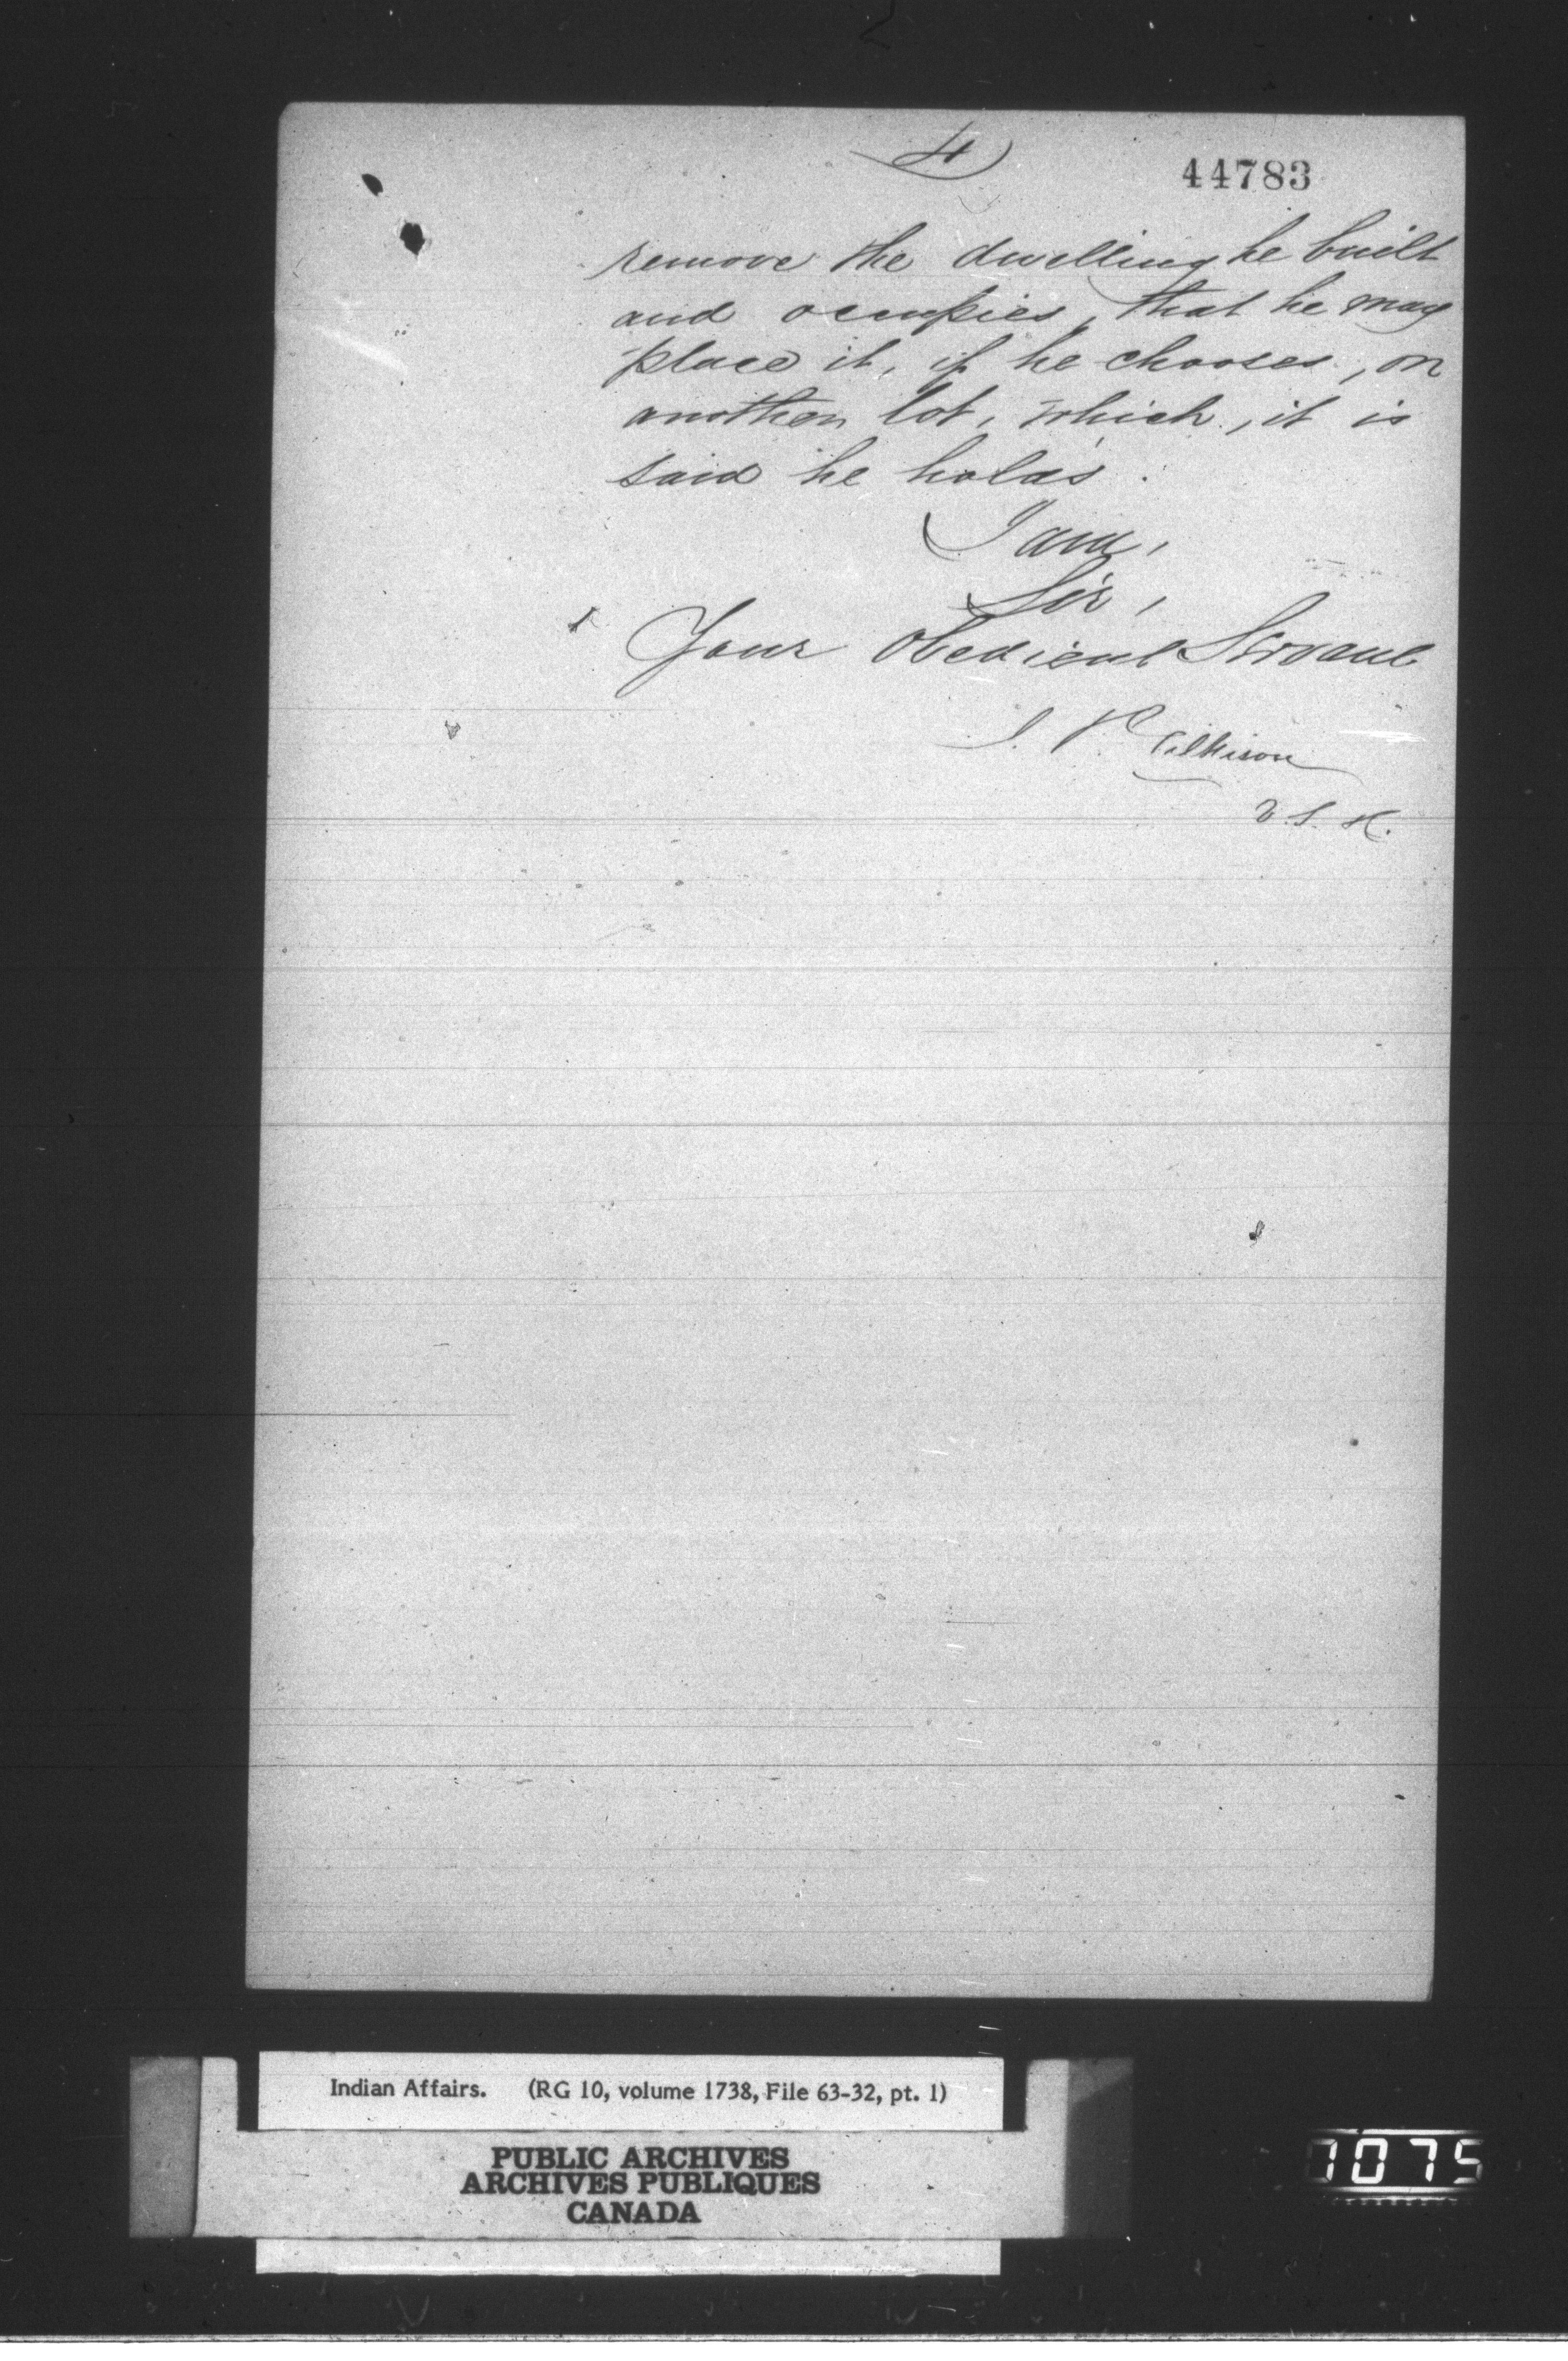 4
44783
remove the dwelling he built
and occupies, that he may
place it, if he chooses, on
another lot, which, it is
said he holds.
I am,
Sir,
Your Obedient Servant
J. T. Gilkison
V. S. &c.
Indian Affairs. (RG 10, volume 1738, File 63-32, pt. 1)
PUBLIC ARCHIVES
ARCHIVES PUBLIQUES
CANADA
1075